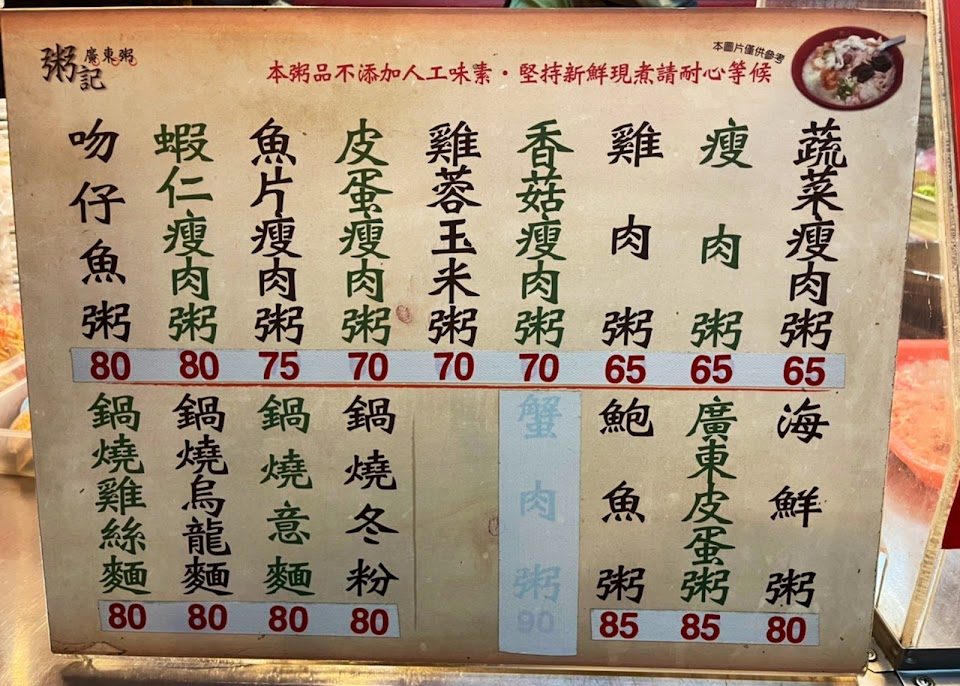 粥記
廣東粥
本粥品不添加人工味素・堅持新鮮現煮請耐心等候
本圖片僅供參考
蔬菜瘦肉粥
65
瘦肉粥
65
雞肉粥
65
香菇瘦肉粥
70
雞蓉玉米粥
70
皮蛋瘦肉粥
70
魚片瘦肉粥
75
蝦仁瘦肉粥
80
吻仔魚粥
80
海鮮粥
80
廣東皮蛋粥
85
鮑魚粥
85
蟹肉粥
90
鍋燒冬粉
80
鍋燒意麵
80
鍋燒烏龍麵
80
鍋燒雞絲麵
80